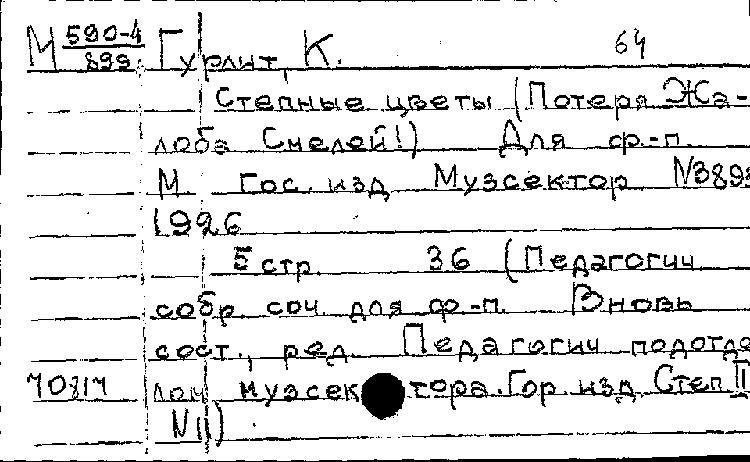 М 590-4/899 Гурлит, К. 64
Степные цветы (Потеря Жа-
лоба Смелей!) Для ф.-п.
М. Гос. изд Музсектор
1926
5 стр. 36 (Педагогич
собр. соч. для ф.-п. Вновь
сост., ред. Педагогич подотде
лом музсектора. Гор изд Степ II
N 11)